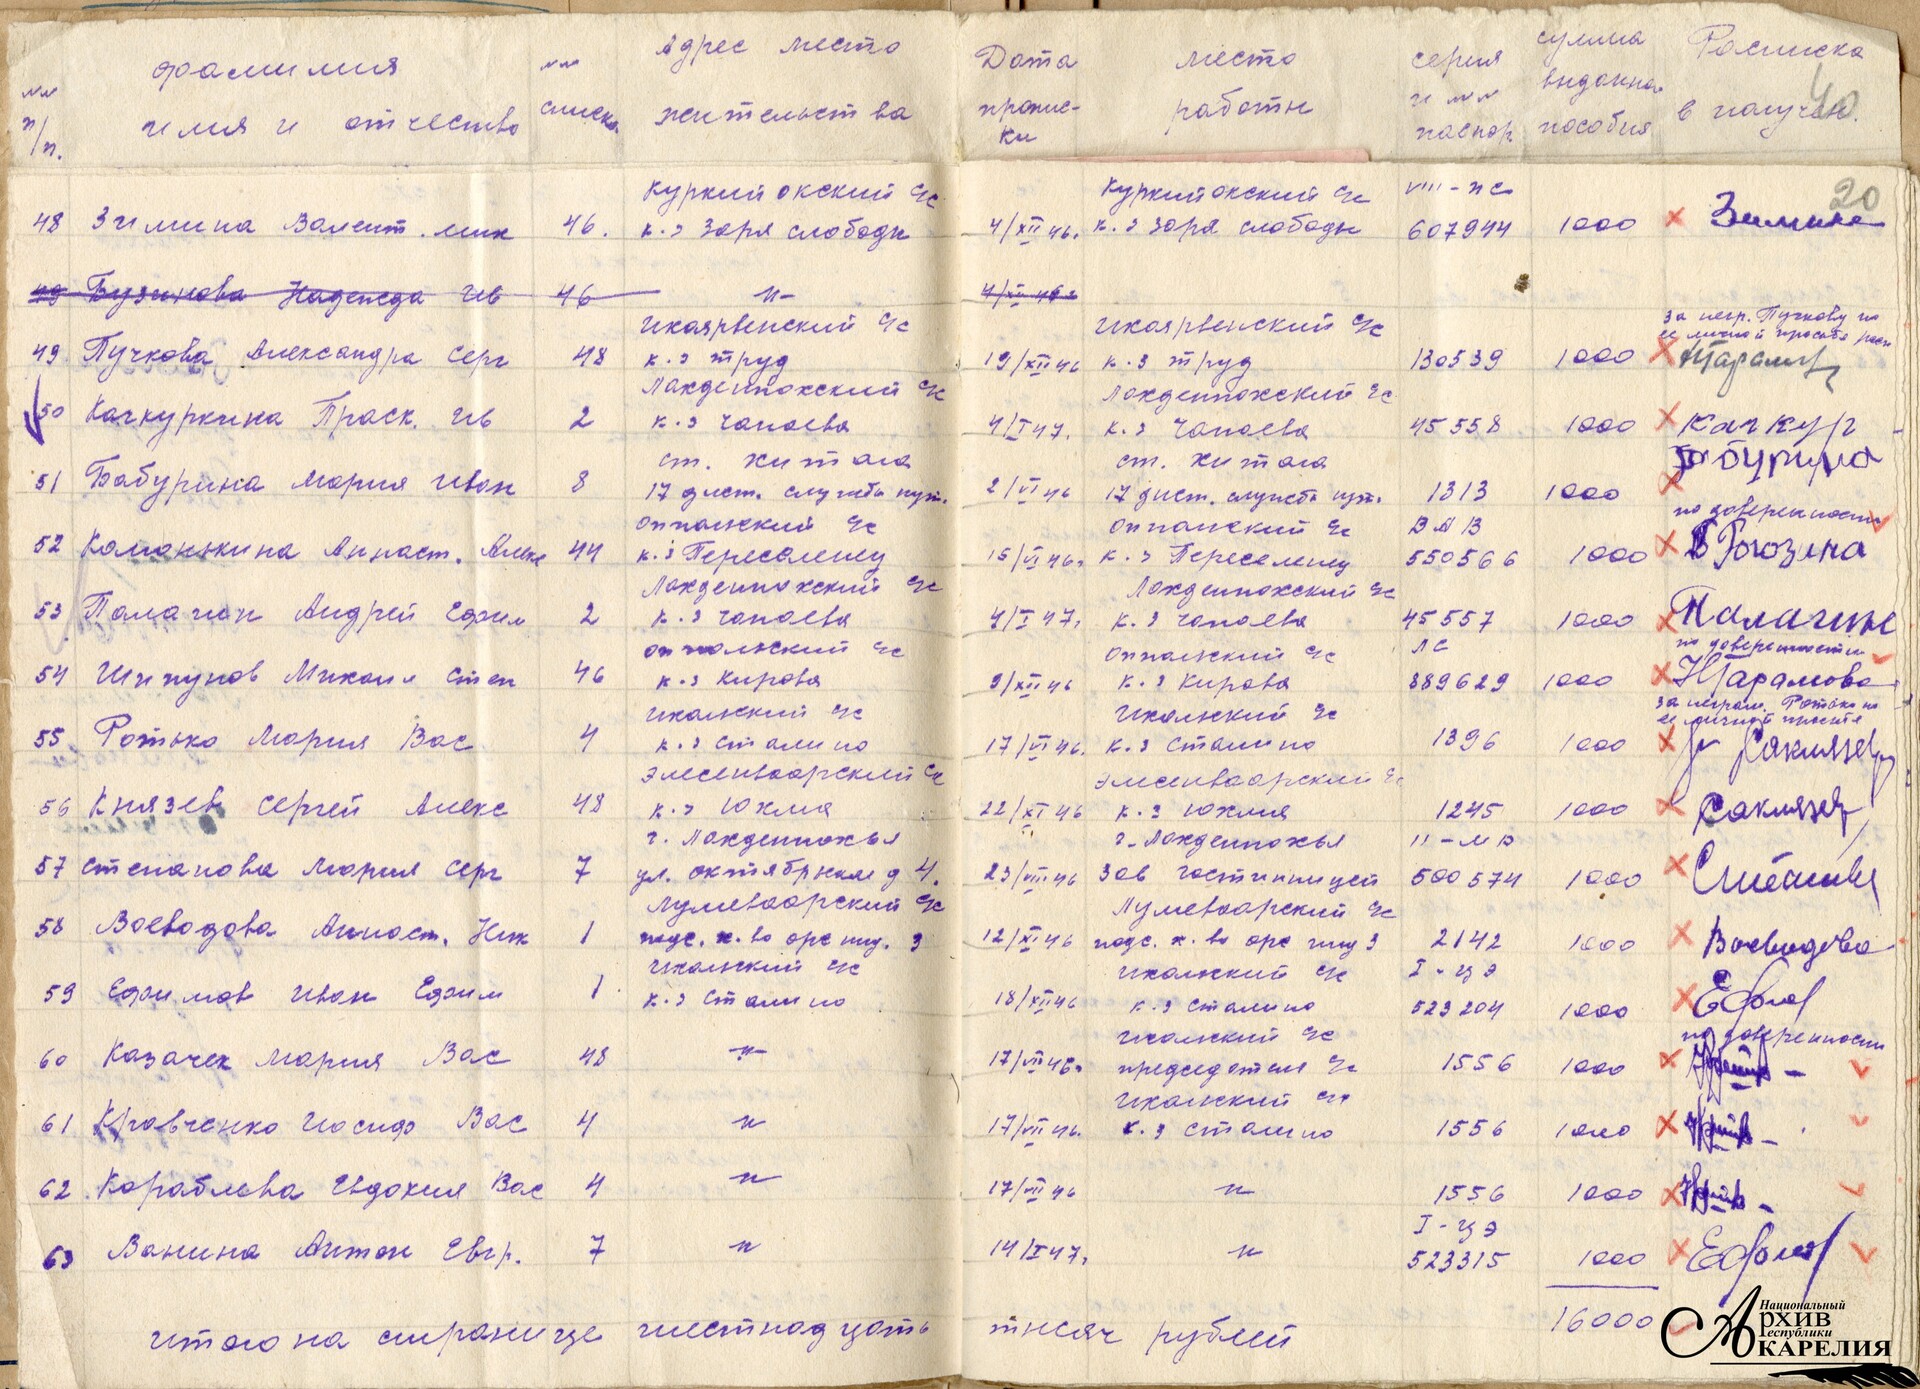 №№ п/п. фамилия имя и отчество №№ списка Адрес место жительства Дата пропис-ки место работы серия и №№ паспор. сумма выданно. пособия Расписка в получен.
40
20
Куркийокский с/с Куркийокский с/с VIII-пс
48 Зимина Валент. мих 46. к-з Заря слободы 4/XII 46. к-з Заря слободы 607944 1000 Зимина
49 Бузинова Надежда Ив 46 -"- 4/XII 46г
Ихоярвенский с/с Ихоярвенский с/с за негр. Пучкову по ее личной просьбе расп
49 Пучкова Александра Серг 48 к-з труд 19/XII 46 к-з труд 130539 1000
Лахденпохский с/с Лахденпохский с/с
50 Качкуркина Праск. Ив 2 к-з Чапаева 4/I 47. к-з Чапаева 45558 1000 Качкур
ст. Хитола ст. Хитола Бабурина
51 Бабурина Мария Иван 8 17 дист. службы пут. 2/VI 46 17 дист. службы пут. 1313 1000
Оппольский с/с Оппольский с/с по доверенности
52 Команькина Анаст. Алекс 44 к-з Переселенец 15/VI 46. к-з Переселенец 550566 1000 Рогозина
Лахденпохский с/с Лахденпохский с/с
53 Палагин Андрей Ефим 2 к-з Чапаева 4/I 47. к-з Чапаева 45557 1000 Палагин
Оппольский с/с Оппольский с/с ЛС по доверенности
54 Шипунов Михаил Степ 46 к-з Кирова 9/XII 46 к-з Кирова 389629 1000 Парамова
Ихольский с/с Ихольский с/с за неграм. Ротько по ее личной просьбе
55 Ротько Мария Вас 4 к-з Сталино 17/VI 46. к-з Сталино 1396 1000
Элисенваарский с/с Элисенваарский с/с
56 Князев Сергей Алекс 48 к-з Южма 22/XI 46 к-з Южмия 1245 1000
г. Лахденпохья г. Лахденпохья II-МЮ
57 Степанова Мария Серг 7 ул. Октябрьская д 4. 23/VIII 46 Зав гостинницей 500574 1000 Степанова
Лумиваарский с/с Лумиваарский с/с
58 Воеводова Анаст. Ник 1 подс. х-во орс 12/XI 46 подс. х-во орс 2142 1000 Воеводова
Ихольский с/с Ихольский с/с I-ЦЭ
59 Ефимов Иван Ефим 1 к-з Сталино 18/XII 46 к-з Сталино 523204 1000 Ефимов
Ихольский с/с по доверенности
60 Казачек Мария Вас 48 -"- 17/VII 46. председателя с/с 1556 1000
Ихольский с/с
61 Кравченко Иосиф Вас 4 -"- 17/VII 46. к-з Сталино 1556 1000
62 Караблева Евдокия Вас 4 -"- 17/VII 46 -"- 1556 1000
I-ЦЭ
63 Ванина Антон Евгр. 7 -"- 14/I 47. -"- 523315 1000 Ефимов
итого на странице шестнадцать тысяч рублей 16000
Национальный
АРХИВ
Республики
КАРЕЛИЯ